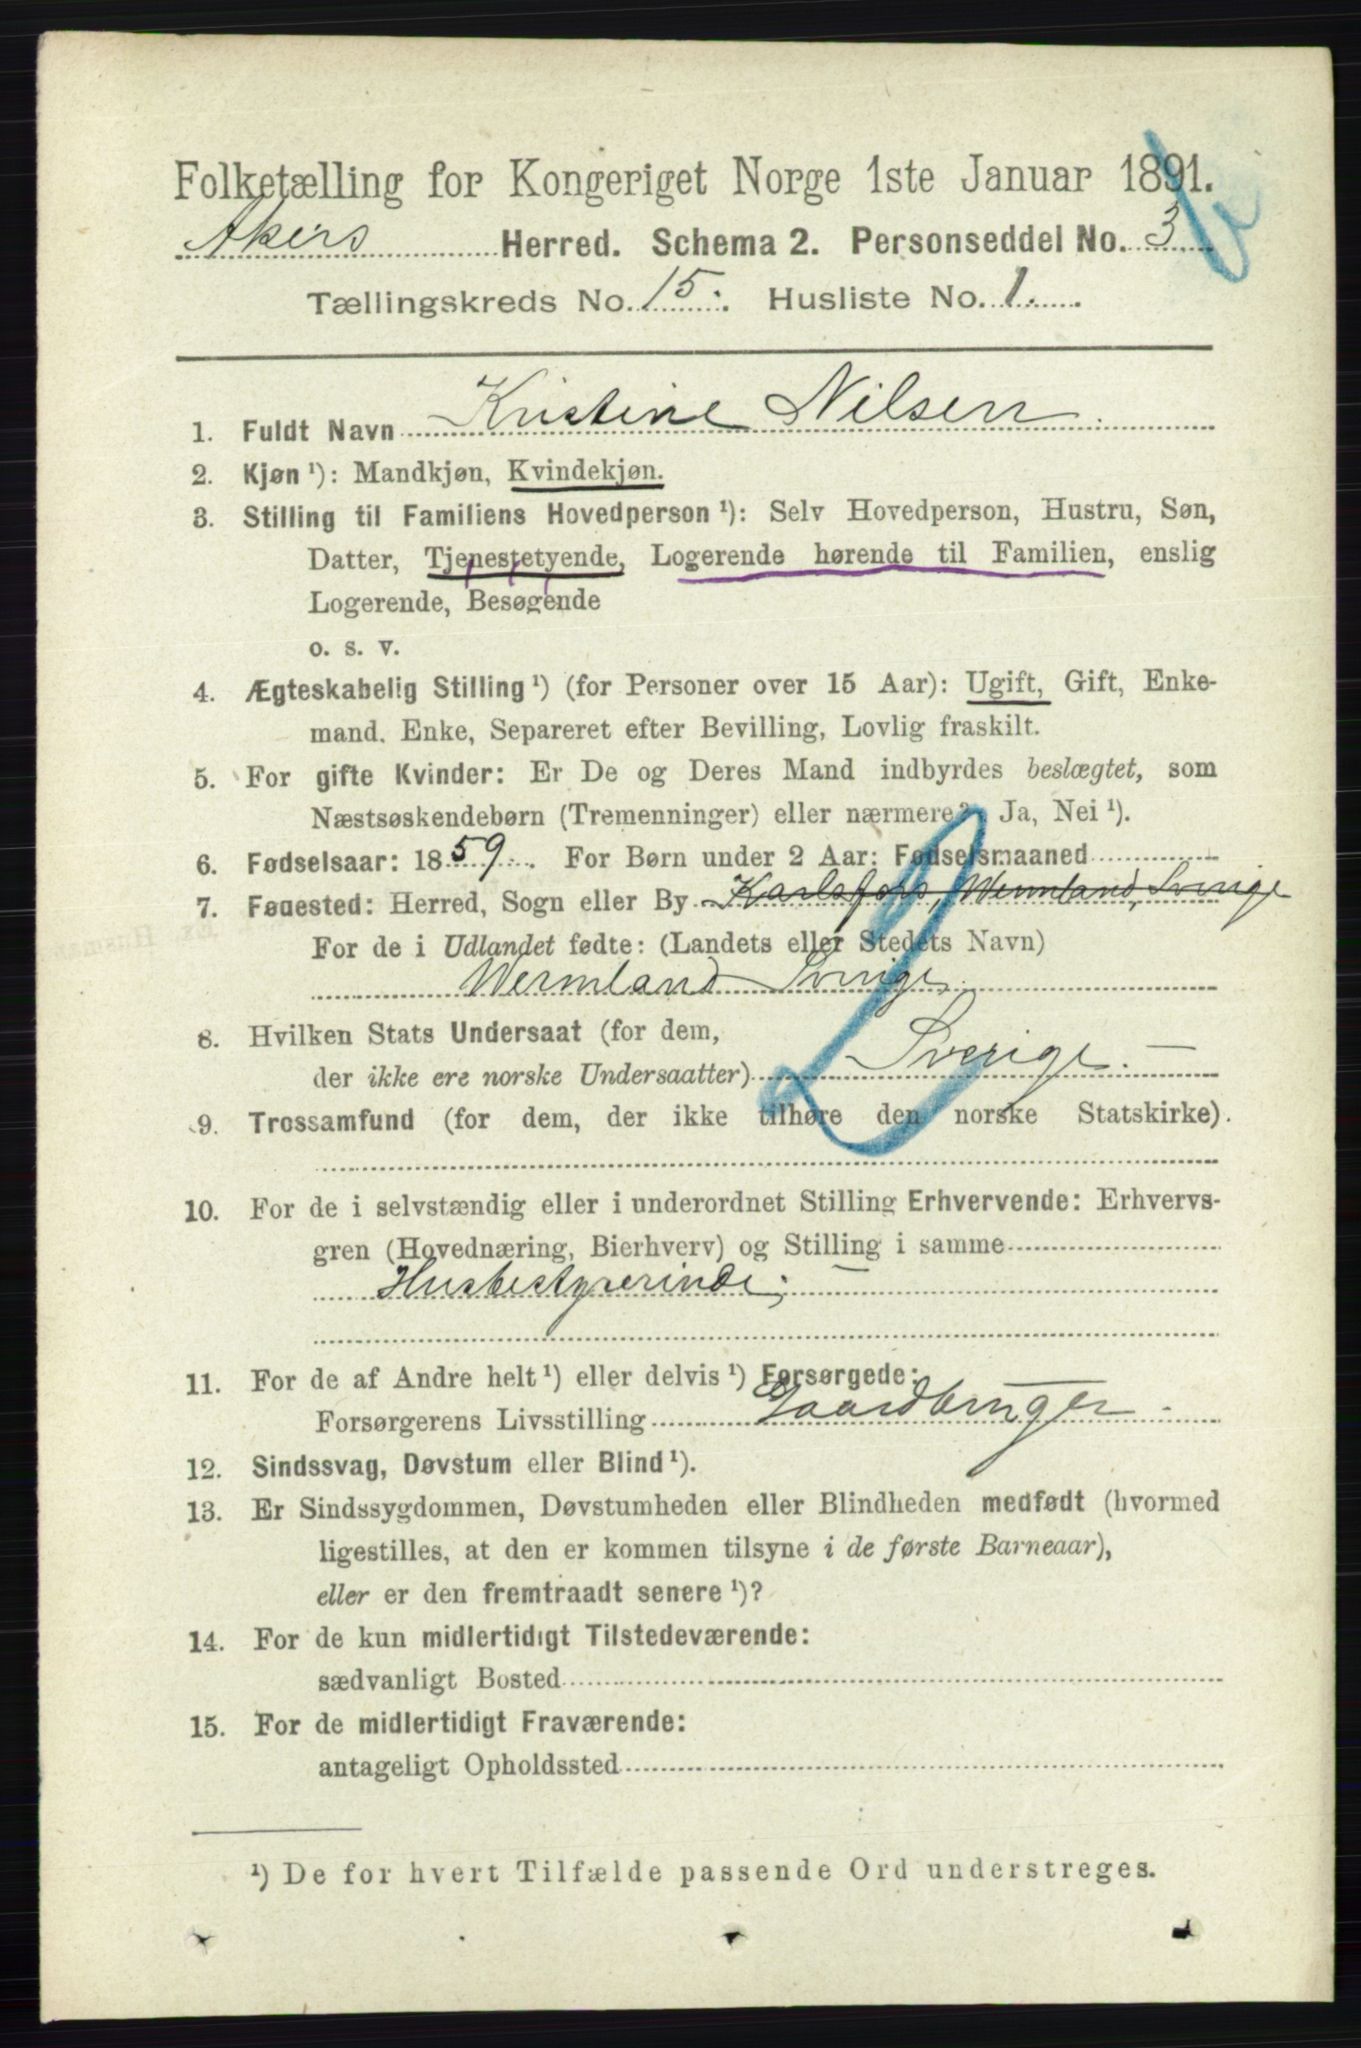 Folketælling for Kongeriget Norge 1ste Januar 1891.
Akers Herred. Schema 2. Personseddel No. 3
Tællingskreds No. 15. Husliste No. 1.
1. Fuldt Navn Kristine Nilsen
2. Kjøn ¹): Mandkjøn, Kvindekjøn.
3. Stilling til Familiens Hovedperson ¹): Selv Hovedperson, Hustru, Søn,
Datter, Tjenestetyende, Logerende hørende til Familien, enslig
Logerende, Besøgende
o. s. v.
4. Ægteskabelig Stilling ¹) (for Personer over 15 Aar): Ugift, Gift, Enke-
mand. Enke, Separeret efter Bevilling, Lovlig fraskilt.
5. For gifte Kvinder: Er De og Deres Mand indbyrdes beslægtet, som
Næstsøskendebørn (Tremenninger) eller nærmere? Ja, Nei ¹).
6. Fødselsaar: 1859. For Børn under 2 Aar: Fødselsmaaned
7. Føuested: Herred, Sogn eller By Karlsfors, Wermland, Sverige
For de i Udlandet fødte: (Landets eller Stedets Navn)
Wermland Sverige
8. Hvilken Stats Undersaat (for dem,
der ikke ere norske Undersaatter) Sverige. —
9. Trossamfund (for dem, der ikke tilhøre den norske Statskirke).
10. For de i selvstændig eller i underordnet Stilling Erhvervende: Erhvervs-
gren (Hovednæring, Bierhverv) og Stilling i samme
Husbestyrerinde; —
11. For de af Andre helt ¹) eller delvis ¹) Forsørgede:
Forsørgerens Livsstilling Gaardbruger.
12. Sindssvag, Døvstum eller Blind ¹).
13. Er Sindssygdommen, Døvstumheden eller Blindheden medfødt (hvormed
ligestilles, at den er kommen tilsyne i de første Barneaar),
eller er den fremtraadt senere ¹)?
14. For de kun midlertidigt Tilstedeværende:
sædvanligt Bosted
15. For de midlertidigt Fraværende:
antageligt Opholdssted
¹) De for hvert Tilfælde passende Ord understreges.